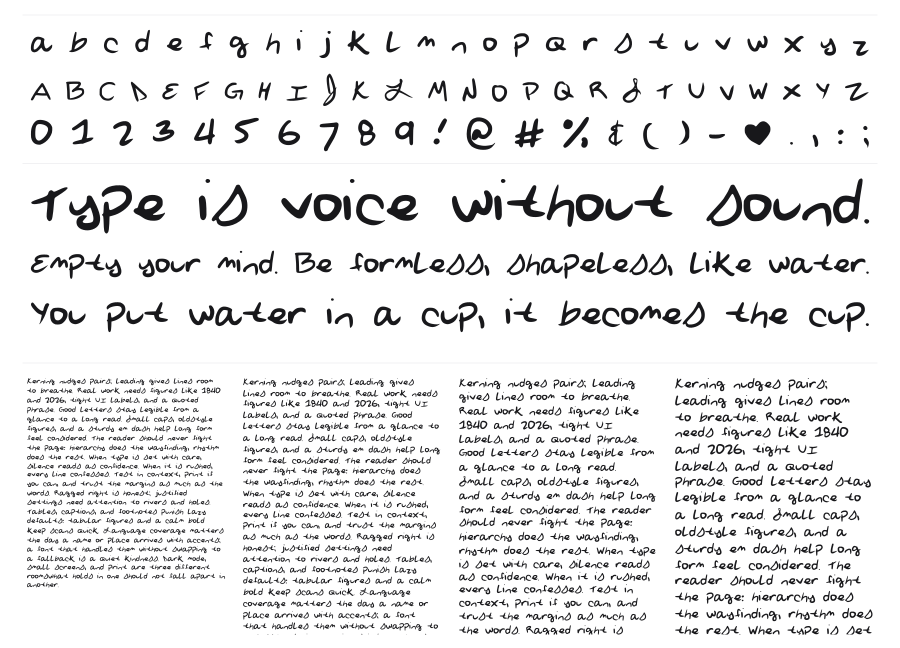 a b c d e f g h i j k l m n o p q r s t u v w x y z
A B C D E F G H I J K L M N O P Q R S T U V W X Y Z
0 1 2 3 4 5 6 7 8 9 ! @ # % ¢ ( ) - ♥ . , : ;
Type is voice without sound.
Empty your mind. Be formless, shapeless, like water.
You put water in a cup, it becomes the cup.
Kerning nudges pairs; leading gives lines room
to breathe. Real work needs figures like 1840
and 2026, tight UI labels, and a quoted
phrase. Good letters stay legible from a
glance to a long read. Small caps, oldstyle
figures, and a sturdy em dash help long
form feel considered. The reader should never fight
the page: hierarchy does the wayfinding, rhythm
does the rest. When type is set with care,
silence reads as confidence. When it is rushed,
every line confesses. Test in context, print if
you can, and trust the margins as much as the
words. Ragged right is honest; justified
settings need attention to rivers and holes.
Tables, captions, and footnotes punish lazy
defaults: tabular figures and a calm bold
keep scans quick. Language coverage matters
the day a name or place arrives with accents;
a font that handles them without swapping to
a fallback is a quiet kindness. Dark mode,
small screens, and print are three different
rooms; what holds in one should not fall apart in
another.
Kerning nudges pairs; leading gives
lines room to breathe. Real work needs
figures like 1840 and 2026, tight UI
labels, and a quoted phrase. Good
letters stay legible from a glance to
a long read. Small caps, oldstyle
figures, and a sturdy em dash help long
form feel considered. The reader should
never fight the page: hierarchy does
the wayfinding, rhythm does the rest.
When type is set with care, silence
reads as confidence. When it is rushed,
every line confesses. Test in context,
print if you can, and trust the margins
as much as the words. Ragged right is
honest; justified settings need
attention to rivers and holes. Tables,
captions, and footnotes punish lazy
defaults: tabular figures and a calm
bold keep scans quick. Language
coverage matters the day a name or
place arrives with accents; a font
that handles them without swapping to
Kerning nudges pairs; leading
gives lines room to breathe.
Real work needs figures like
1840 and 2026, tight UI
labels, and a quoted phrase.
Good letters stay legible from
a glance to a long read.
Small caps, oldstyle figures,
and a sturdy em dash help long
form feel considered. The reader
should never fight the page:
hierarchy does the wayfinding,
rhythm does the rest. When type
is set with care, silence reads
as confidence. When it is rushed,
every line confesses. Test in
context, print if you can, and
trust the margins as much as
the words. Ragged right is
Kerning nudges pairs;
leading gives lines room
to breathe. Real work
needs figures like 1840
and 2026, tight UI
labels, and a quoted
phrase. Good letters stay
legible from a glance to
a long read. Small caps,
oldstyle figures, and a
sturdy em dash help long
form feel considered. The
reader should never fight
the page: hierarchy does
the wayfinding, rhythm does
the rest. When type is set